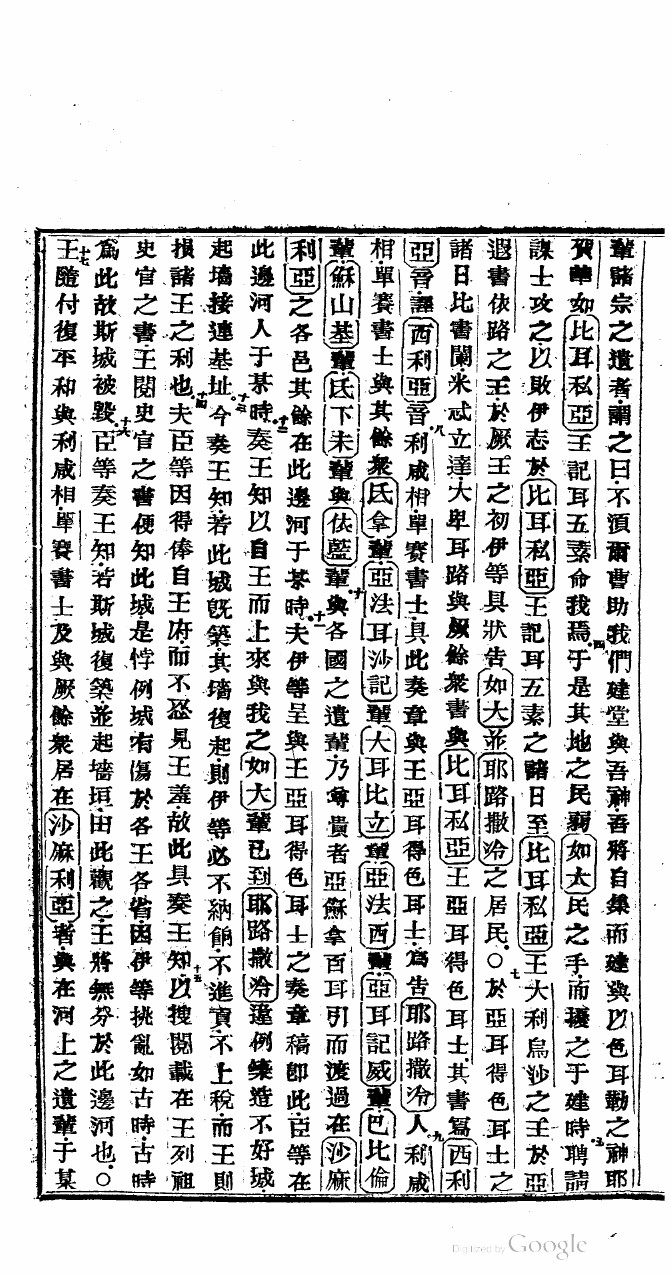 輩諸宗之遺者謂之曰不須爾曹助我們建堂與吾神吾將自集而建與以色耳勒之神耶
賀華如比耳私亞王記耳五素命我焉四于是其地之民弱如大民之手而擾之于建時五聘請
謀士攻之以敗伊志於比耳私亞王記耳五素之諸日至比耳私亞王大利烏沙之王於亞
遐書依路之王於厥王之初伊等具狀告如大並耶路撒冷之居民○七於亞耳得色耳士之
諸日比書闌米忒立達大卑耳路與厥餘衆書與比耳私亞王亞耳得色耳士其書寫西利
亞音譯西利亞音八利咸相單賽書士具此奏章與王亞耳得色耳士為告耶路撒冷人九利咸
相單賽書士與其餘衆氏拿輩亞法耳沙記輩大耳比立輩亞法西輩亞耳記威輩巴比倫
輩蘇山基輩氏下未輩與依藍輩十與各國之遺輩乃尊貴者亞蘇拿百耳引而渡過在沙麻
利亞之各邑其餘在此邊河于某時十一夫伊等呈與王亞耳得色耳士之奏章稿即此臣等在
此邊河人于某時十二奏王知以自王而上來與我之如大輩已到耶路撒冷違例築造不好城
起墻接連基址十三今奏王知若此城既築其墻復起則伊等必不納餉不進貢不上稅而王則
損諸王之利也十四夫臣等因得俸自王府而不忍見王羞故此具奏王知十五以搜閱載在王列祖
史官之書王閱史官之書便知此城是悖例城有傷於各王各省因伊等挑亂如古時古時
為此故斯城被毀十六臣等奏王知若斯城復築並起墻垣由此觀之王將無分於此邊河也○
十七王隨付復平和與利咸相單賽書士及與厥餘衆居在沙麻利亞者與在河上之遺輩于某
Digitized by Google